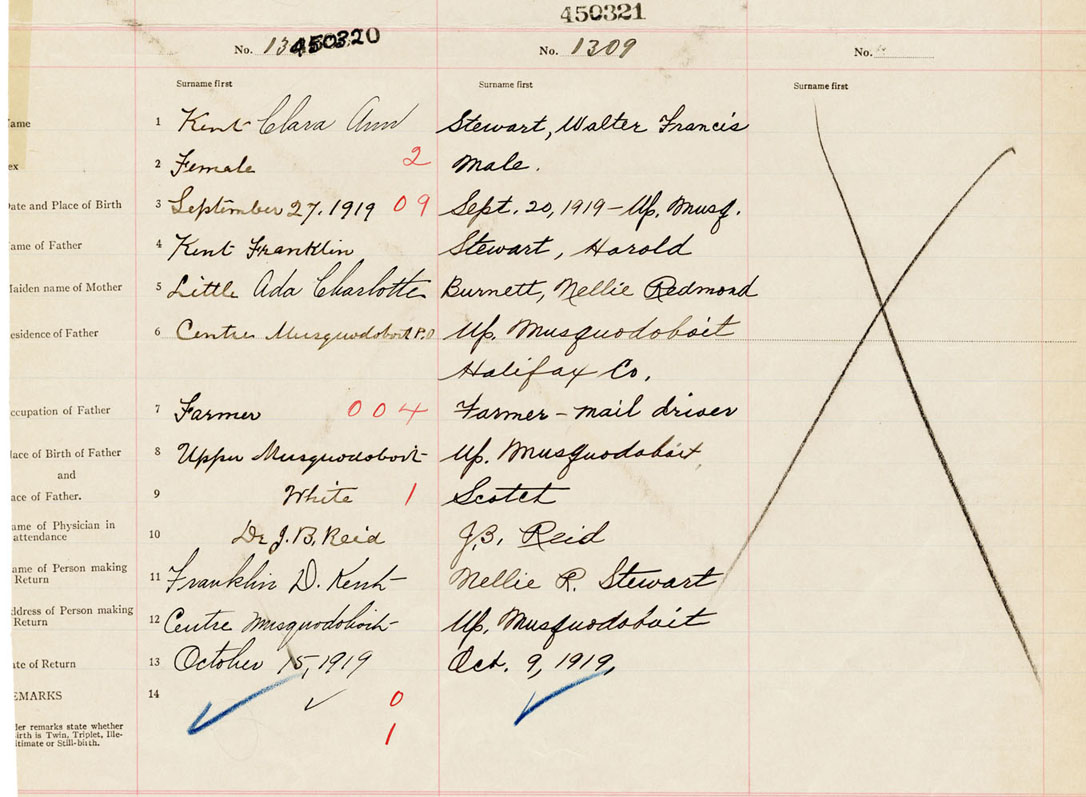 450321
No. 13 450320
No. 1309
No.
Surname first
Surname first
Surname first
ame
1
Kent Clara Ann
Stewart, Walter Francis
ex
2
Female
2
Male.
ate and Place of Birth
3
September 27, 1919
09
Sept. 20, 1919 - Up. Musq.
ame of Father
4
Kent Franklin
Stewart, Harold
aiden name of Mother
5
Little Ada Charlotte
Burnett, Nellie Redmond
esidence of Father
6
Centre Musquodoboit P.O
Up. Musquodoboit
Halifax Co.
ccupation of Father
7
Farmer
004
Farmer - mail driver
lace of Birth of Father
8
Upper Musquodoboit
Up. Musquodoboit
and
ace of Father.
9
White
1
Scotch
ame of Physician in
attendance
10
Dr J. B. Reid
J.B. Reid
ame of Person making
Return
11
Franklin D. Kent
Nellie R. Stewart
ddress of Person making
Return
12
Centre Musquodoboit
Up. Musquodoboit
ate of Return
13
October 15, 1919
Oct. 9, 1919,
EMARKS
14
0
der remarks state whether
irth is Twin, Triplet, Ille-
itimate or Still-birth.
1